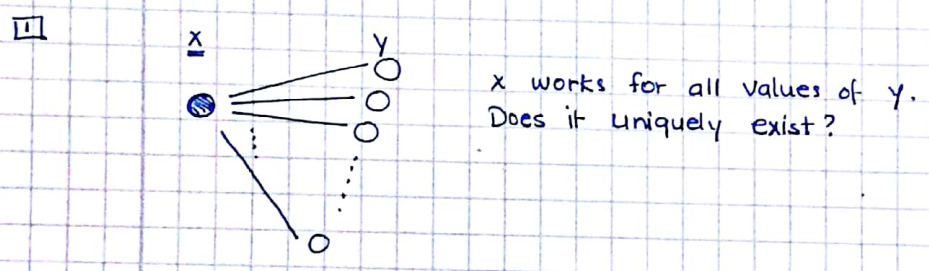 1
x
y
x works for all values of y.
Does it uniquely exist?